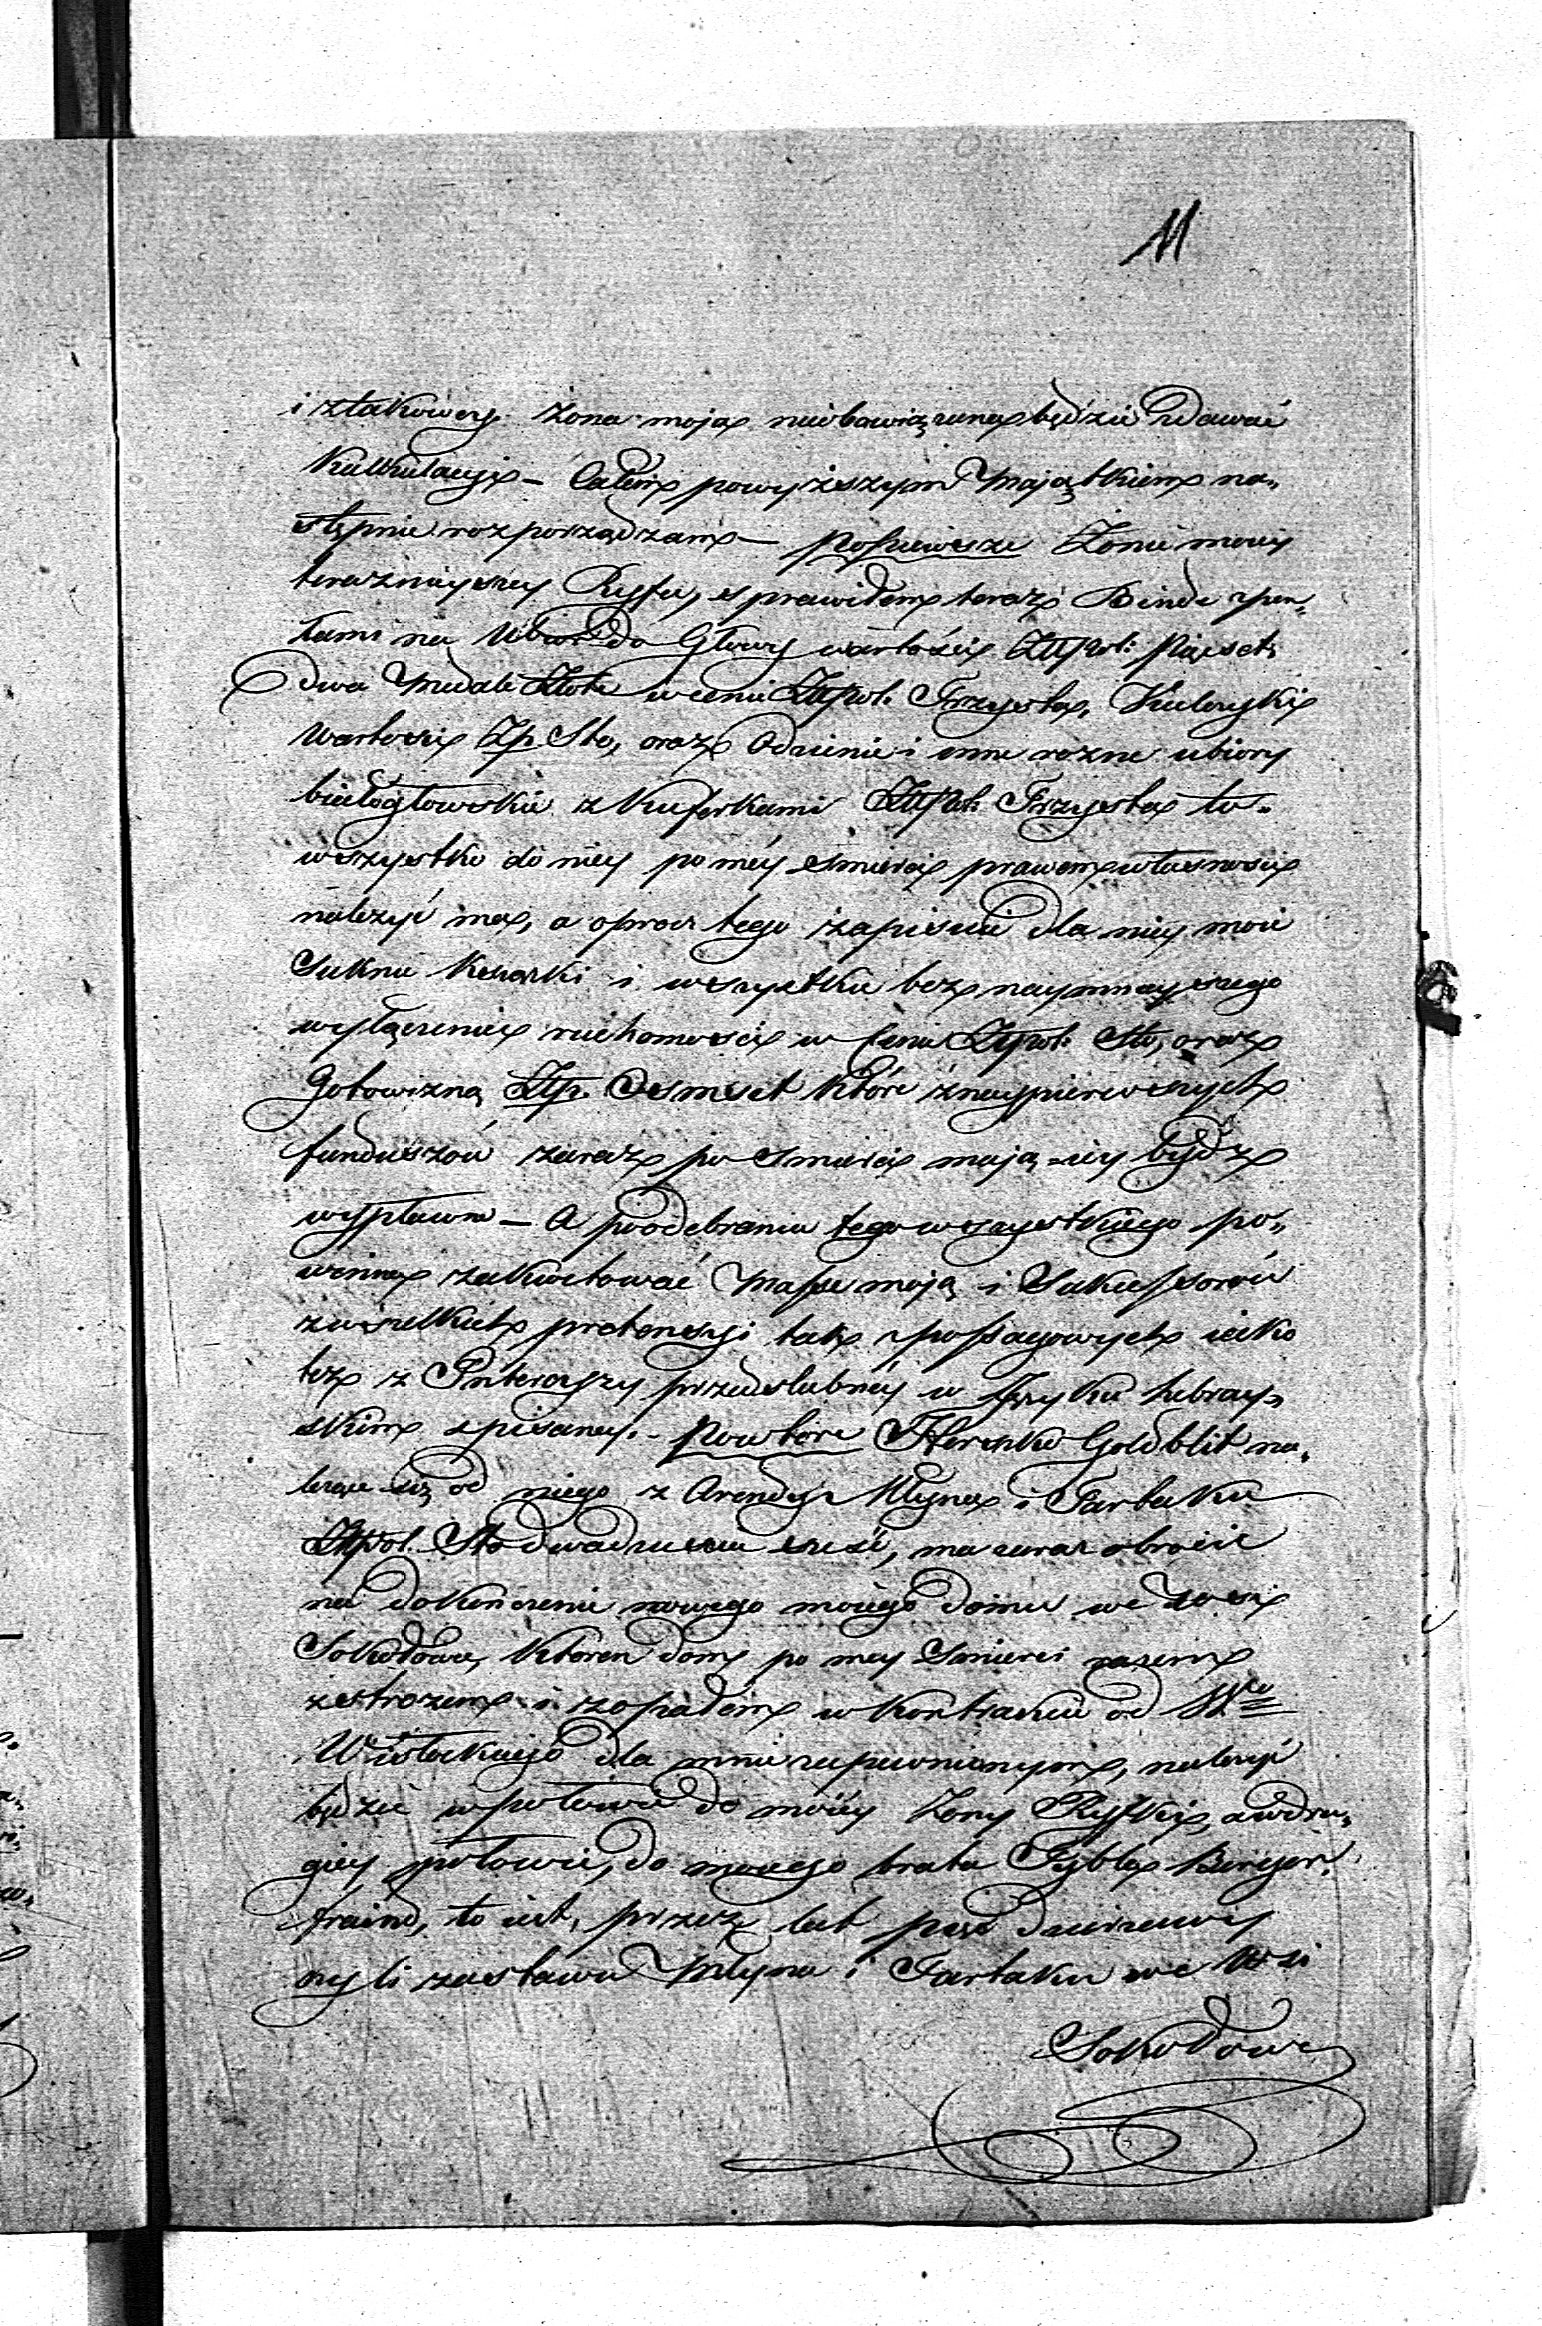 11
i ztakowey żona moja nieobowiązana będzie zdawać
Kalkulacyi – Całem powyższym Majątkiem na„
stępnie rozporządzam – Popierwsze Żonie moiey
teraznieyszey Ryfki, sprawiłem teraz Binde z per„
łami na Ubior do Głowy wartości Złłpol: Pięcset,
dwa Medale Złote w cenie Złłpol. Trzysta, Kulczyki
Wartosci Złp. Sto, oraz Odzienie i inne rozne ubiory
białogłowskie z kuferkami Złłpol: Trzysta to
wszystko do niey po méy smierci prawem własnosci
należyć ma, a oprocz tego zapisuię dla niey moie
Suknie i wszystkie bez naymnieyszego
wyłączenia ruchomosci w Cenie Złłpol: Sto, oraz
Gotowizną Złłp. Osmset które z naypierwszych
funduszów zaraz po Smierci mają iey bydź
wypłacone – A po odebraniu tego wszystkiego po„
winna zakwitować Masse moją i Sukcessorów
z wszelkich pretensyi tak z possagowych iako
też z Intercyzy przedslubnéy w Języku hebray„
skim spisaney. – Powtóre Herszko Goldblit na„
leżące się od niego z Arendy Młyna i Tartaku
Złłpol. Sto dwadziescia sześć, ma zaraz obrocić
na dokończenie nowego moiego domu we Wsi
Sokołowe, ktoren dom po mey Smierci razem
zestrozem i zopałem w kontrakcie od Wgo
Wisłockiego dla mnie zapewnionym, należyć
będzie w połowie do moiéy Żony Ryfki, a w dru„
giey połowie, do moiego brata Fybla Berger„
fraind, to iest, przez lat pięć Dzierzawy
czyli zastawu Młyna i Tartaku we Wsi
Sokołowe